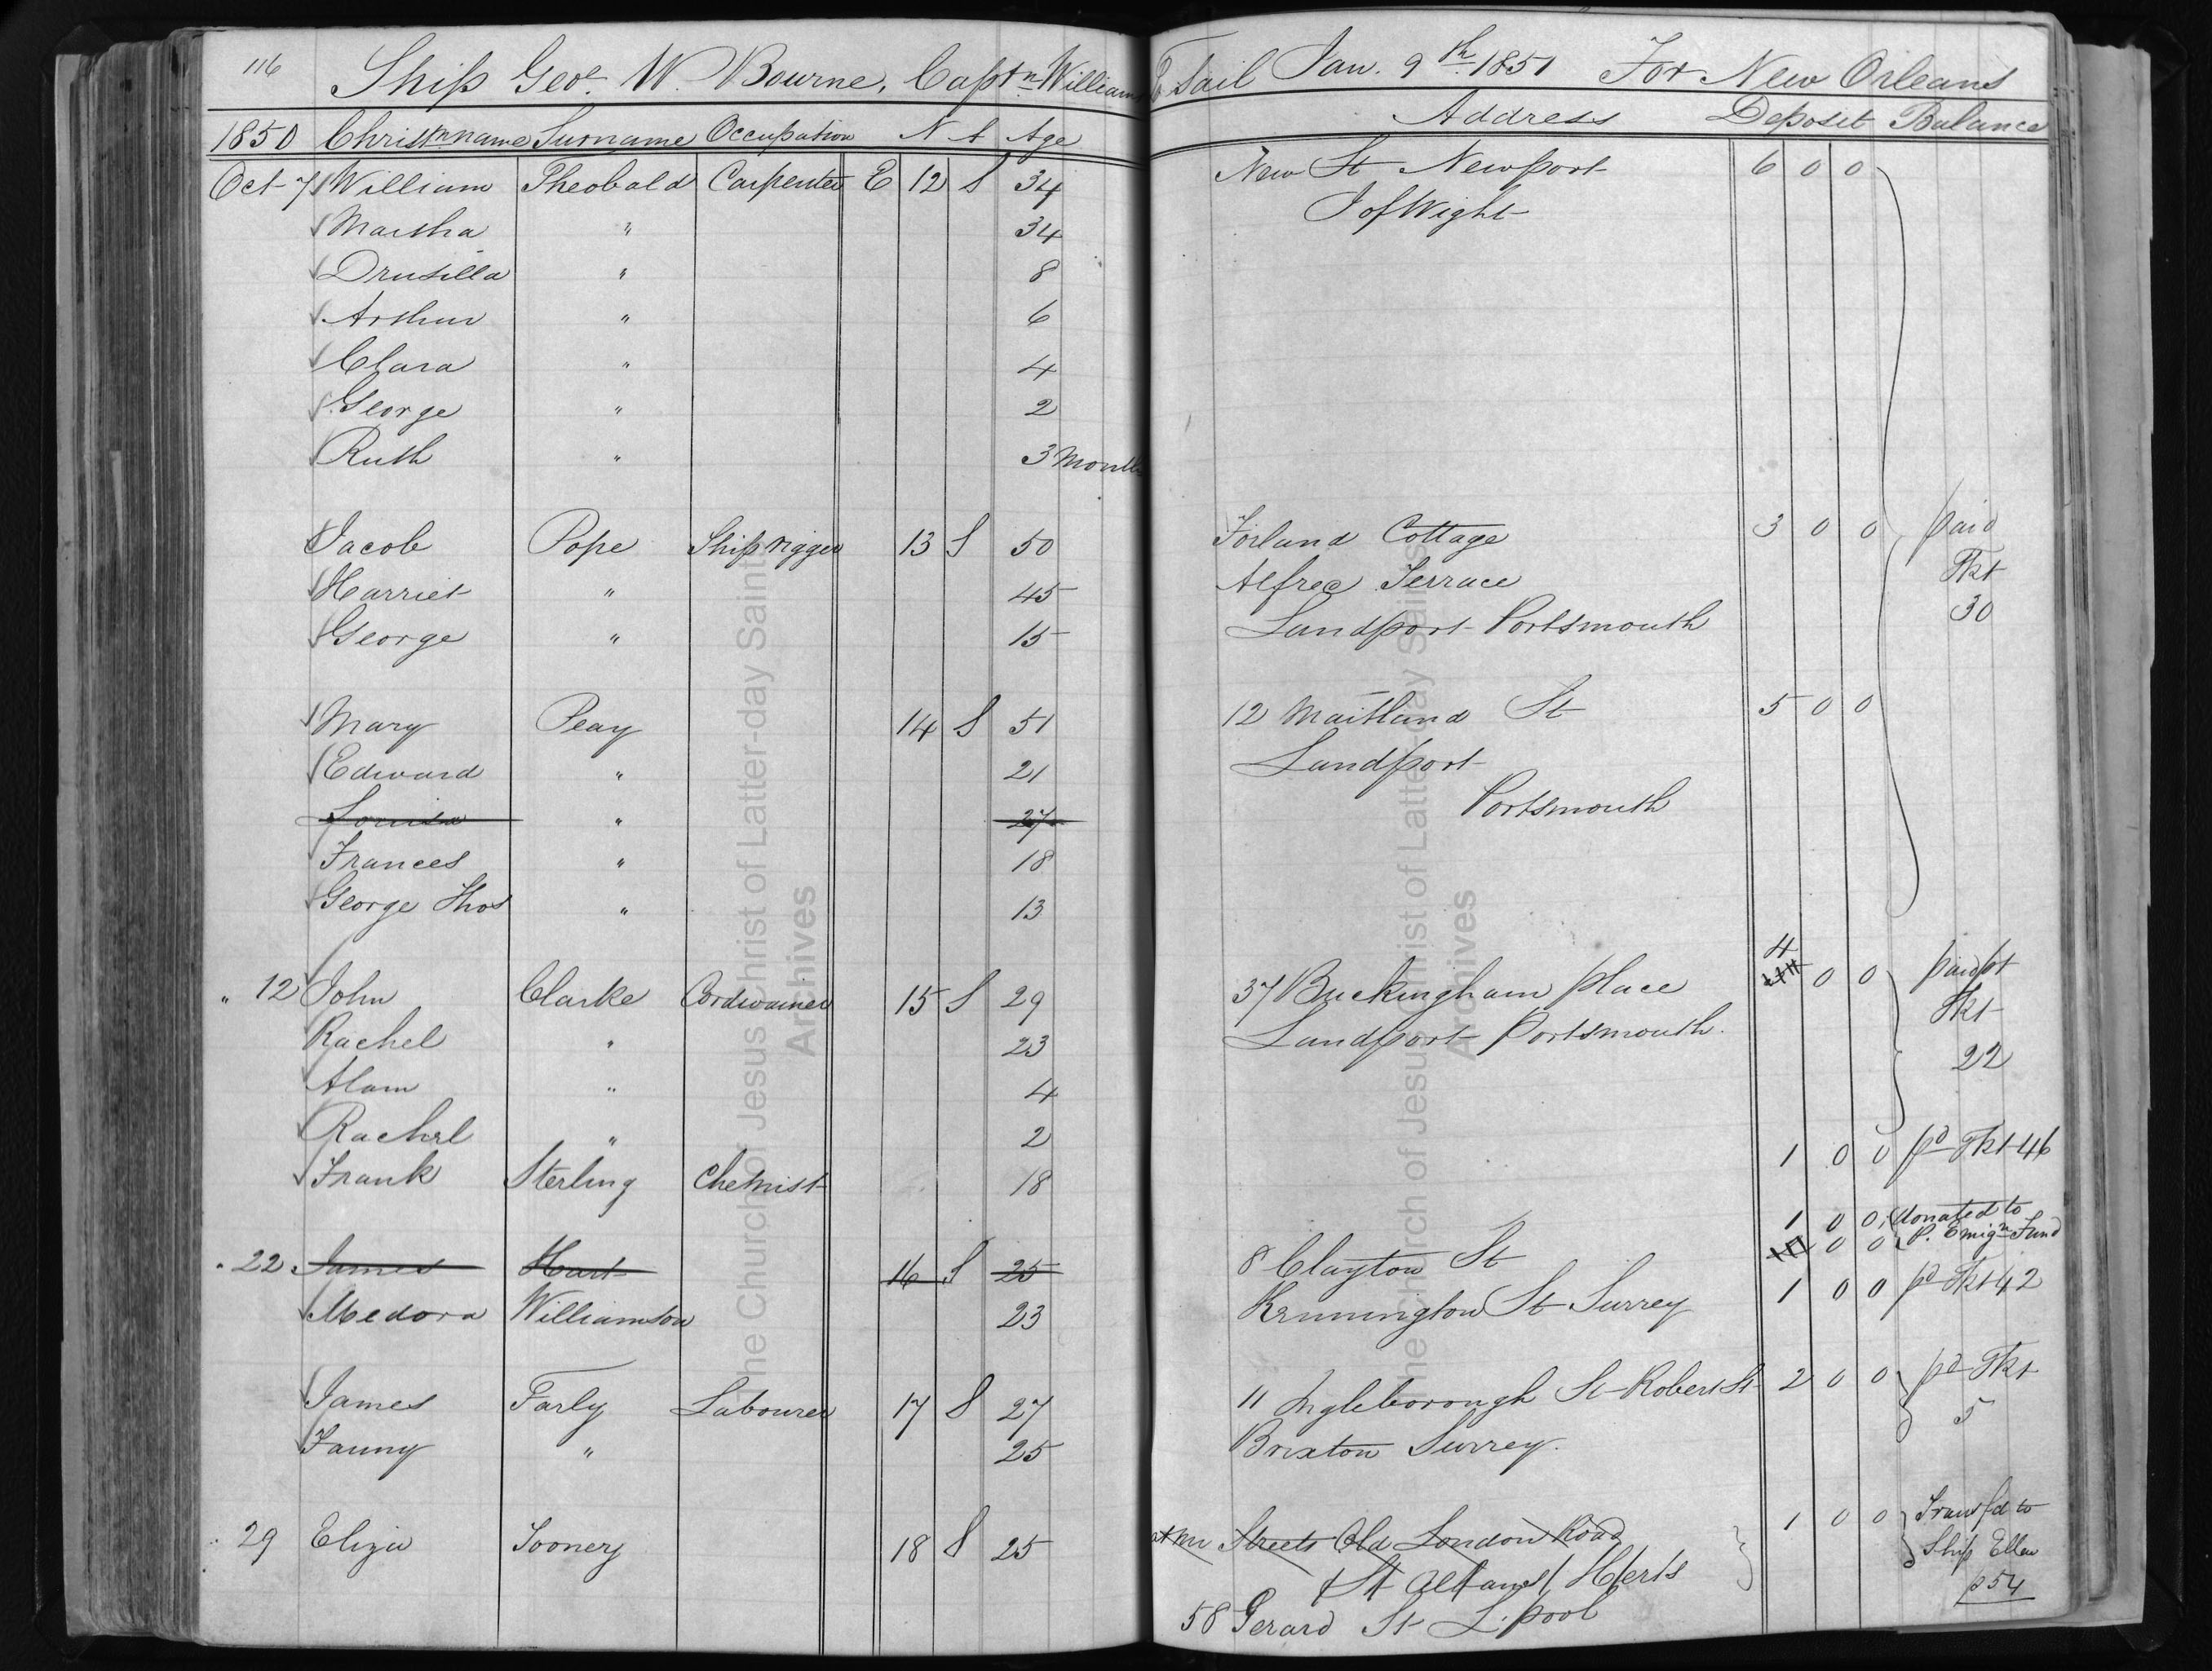 116 Ship Geoe. W. Bourne, Captn Williams To Sail Jan. 9th 1851 For New Orleans
1850 Christnname Surname Occupation N A Age Address Deposit Balance
Oct 7 William Theobald Carpenter E 12 S 34 New St Newport 6 0 0
Martha " 34 I of Wight
Drusilla " 8
Arthur " 6
Clara " 4
George " 2
Ruth " 3 Months
Jacob Pope Ship rigger 13 S 50 Forland Cottage 3 0 0 paid
Harriet " 45 Alfred Terrace Tkt
George " 15 Landport Portsmouth 30
Mary Peay 14 S 51 12 Maitland St 5 0 0
Edward " 21 Landport
Louisa " 27 Portsmouth
Frances " 18
George Thos " 13
4
" 12 John Clarke Cordwainer 15 S 29 37 Buckingham place 0 0 paid pt
Rachel " 23 Landport Portsmouth. Tkt
Alam " 4 22
Rachel " 2
Frank Sterling Chemist 18 1 0 0 pd Tkt 46
1 0 0 donated to
" 22 James Hart 16 S 25 8 Clayton St 0 0 P. Emign Fund
Medora Williamson 23 Kennington St Surrey 1 0 0 pd Tkt 42
James Farly Labourer 17 S 27 11 Ingleborough St Robert St 2 0 0 pd Tkt
Fanny " 25 Brixton Surrey. 5
" 29 Eliza Toonery 18 S 25 at Mr Streets Old London Road 1 0 0 Transfd to
St Albans Herts Ship Ellen
58 Gerard St L.pool p54
The Church of Jesus Christ of Latter-day Saints
Archives
The Church of Jesus Christ of Latter-day Saints
Archives